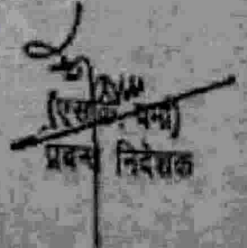 (एस.के. वर्मा)
प्रबन्ध निदेशक